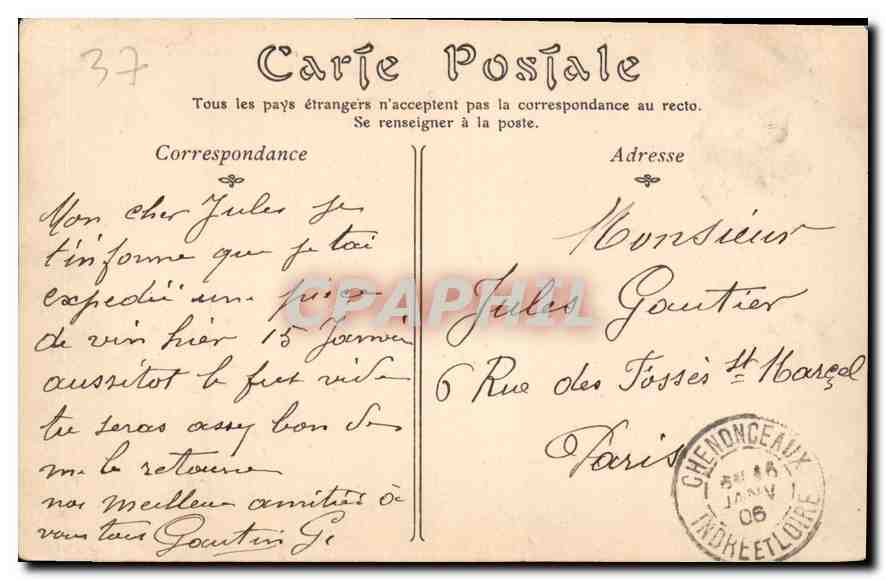 37
Carte Postale
Tous les pays étrangers n'acceptent pas la correspondance au recto.
Se renseigner à la poste.
Correspondance
Adresse
Mon cher Jules je
t'informe que je tai
expedié une pièce
de vin hier 15 Janvier
aussitot le fut vide
tu seras assez bon de
me le retourner
nos meilleurs amitiés à
vous tous Gautier G.
Monsieur
Jules Gautier
6 Rue des Fossès St Marçel
Paris
CPAPHIL
CHENONCEAUX
16
JANV
06
INDRE ET LOIRE